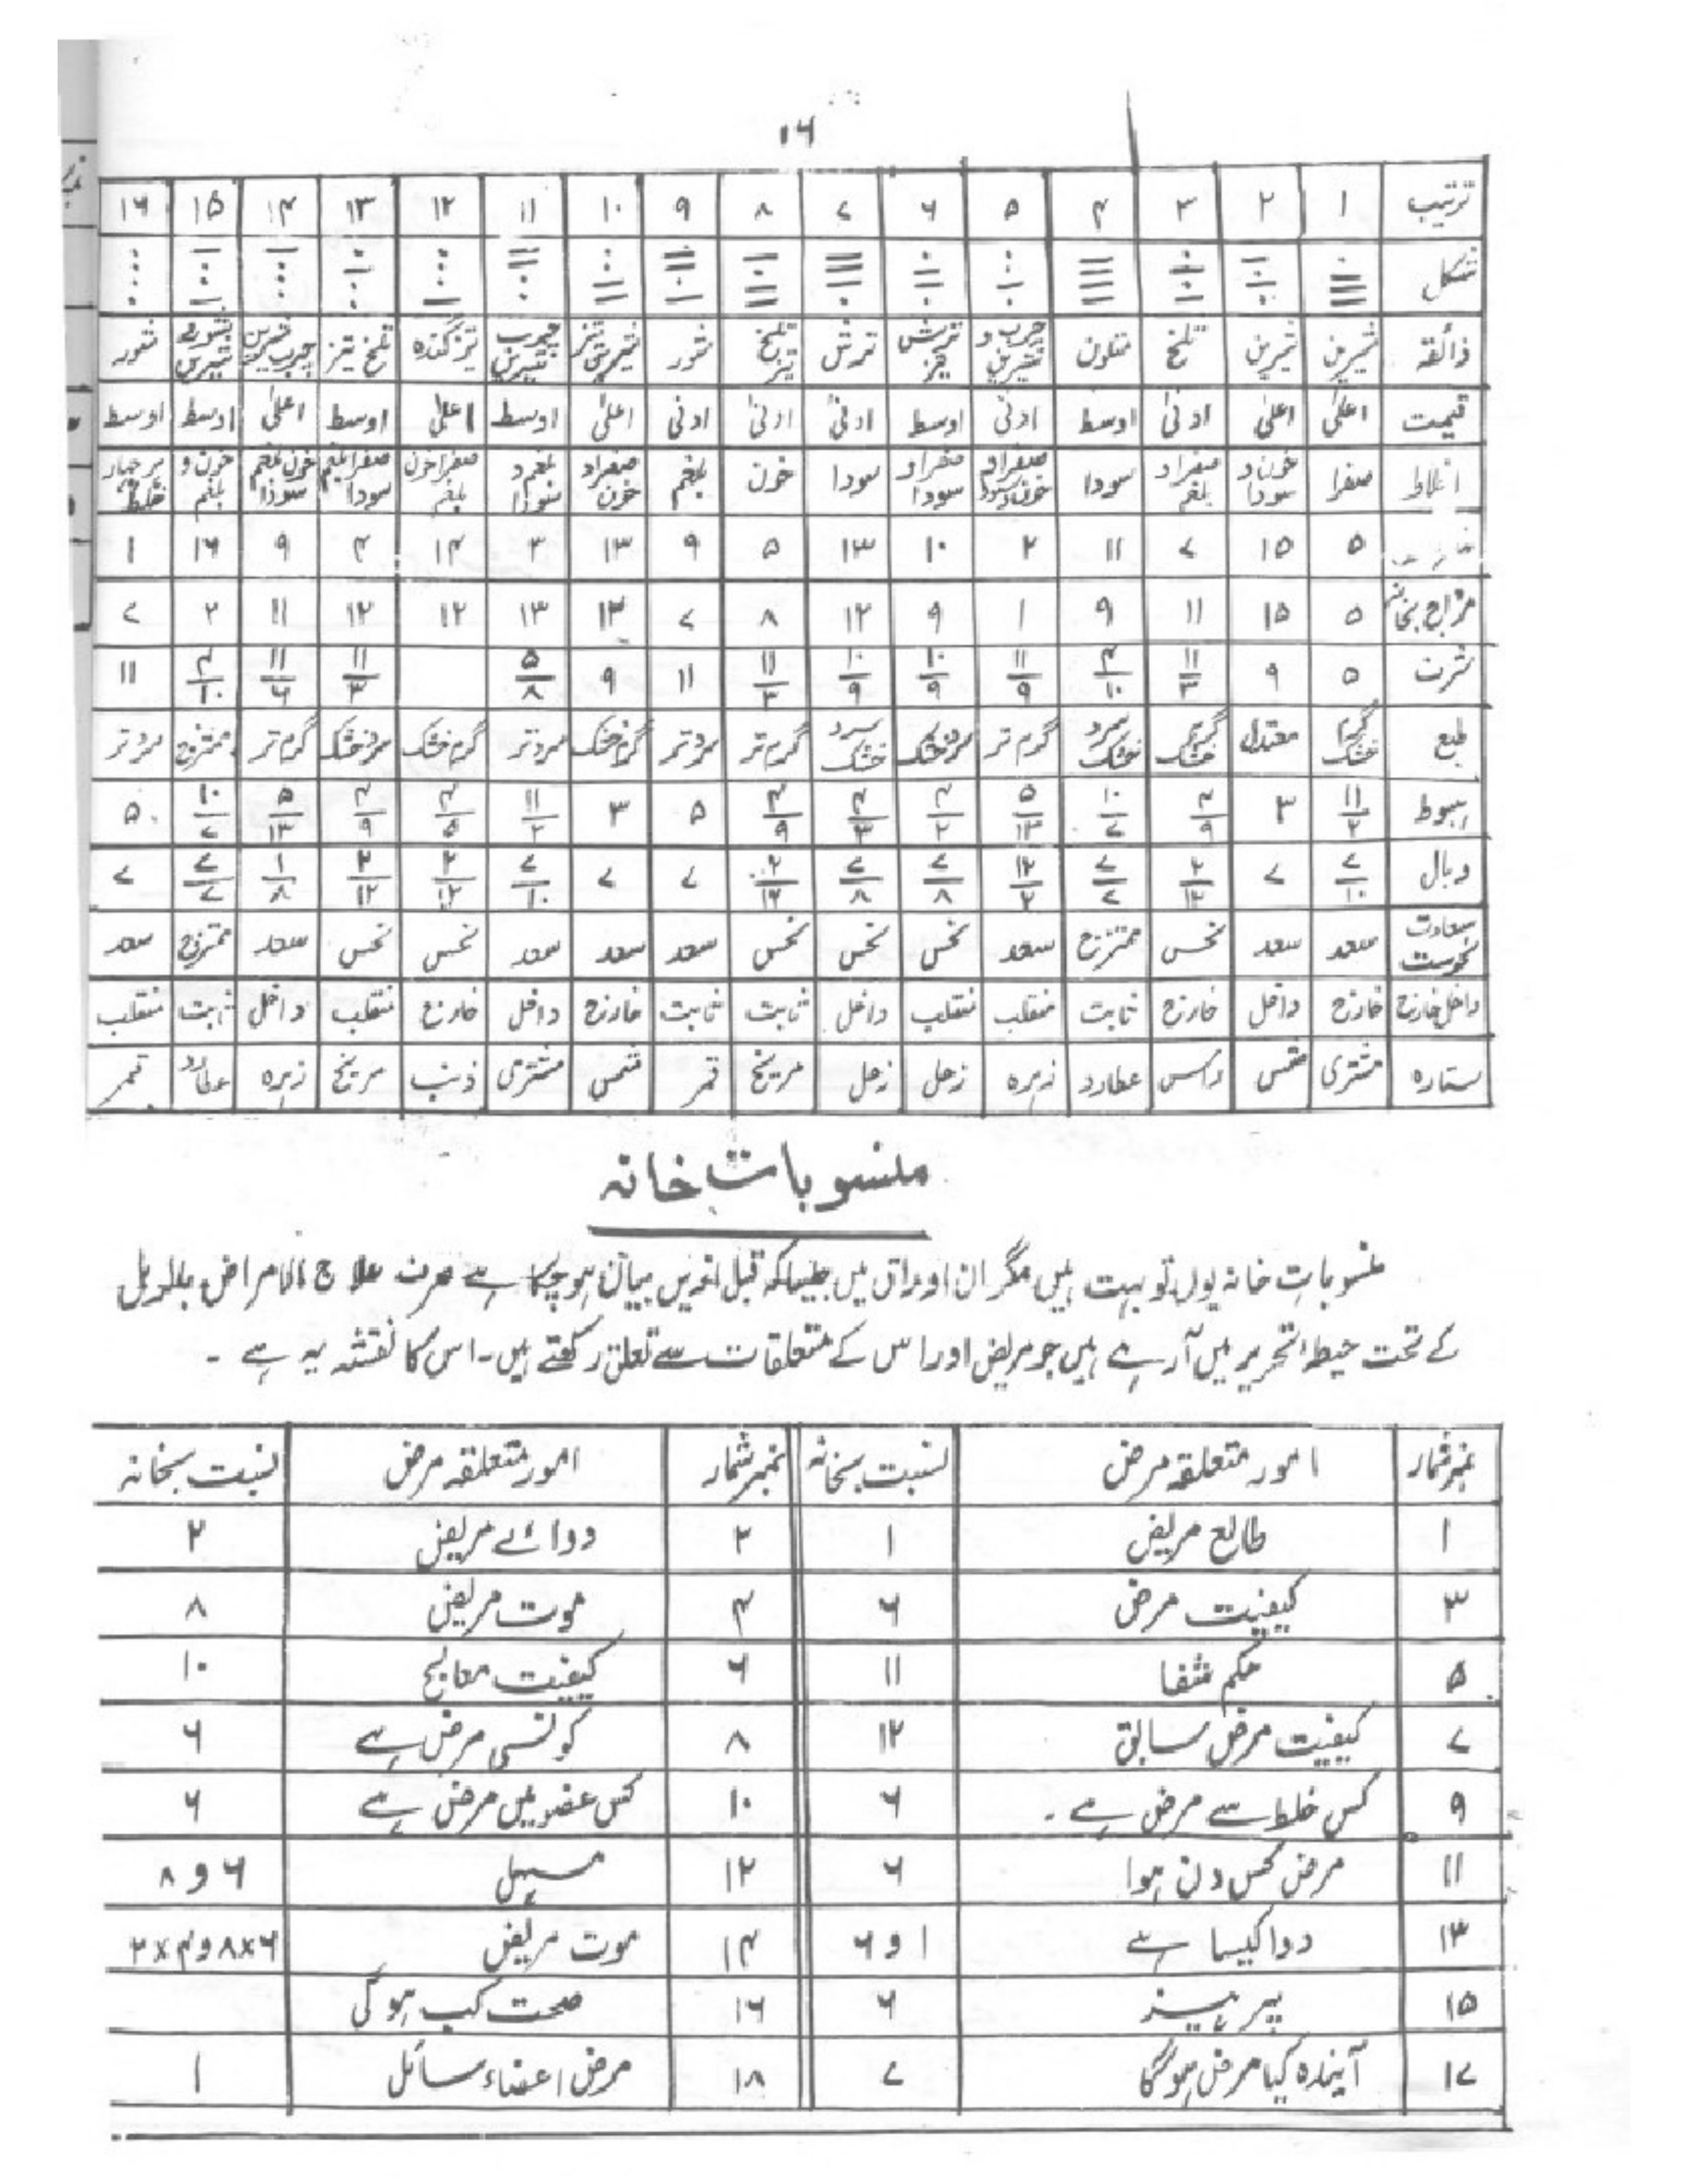 ۱۶
ترتیب ۱ ۲ ۳ ۴ ۵ ۶ ۷ ۸ ۹ ۱۰ ۱۱ ۱۲ ۱۳ ۱۴ ۱۵ ۱۶
شکل
ذائقہ شیریں شیریں تلخ متلون چرب و شیریں ترش تیز ترش تلخ تیز شور شیریں تیز چرب شیریں تیز گندہ تلخ تیز چرب شیریں شور شیریں شور
قیمت اعلیٰ اعلیٰ ادنیٰ اوسط ادنیٰ اوسط ادنیٰ ادنیٰ ادنیٰ اعلیٰ اوسط اعلیٰ اوسط اعلیٰ اوسط اوسط
اخلاط صفرا خون و سودا صفرا و بلغم سودا صفرا و خون و سودا صفرا و سودا سودا خون بلغم صفرا و خون بلغم و سودا صفرا خون بلغم صفرا بلغم سودا خون بلغم سودا خون و بلغم ہر چہار خلط
۵ ۱۵ ۷ ۱۱ ۲ ۱۰ ۱۳ ۵ ۹ ۱۳ ۳ ۱۴ ۴ ۹ ۱۶ ۱
مزاج بخانہ ۵ ۱۵ ۱۱ ۹ ۱ ۹ ۱۲ ۸ ۷ ۱۳ ۱۳ ۱۲ ۱۲ ۱۱ ۲ ۷
شرف ۵ ۹ ۱۱/۳ ۴/۱۰ ۱۱/۹ ۱۰/۹ ۱۰/۹ ۱۱/۳ ۱۱ ۹ ۵/۸ ۱۱/۳ ۱۱/۶ ۴/۱۰ ۱۱
طبع گرم خشک معتدل گرم خشک سرد خشک گرم تر سرد خشک سرد خشک گرم تر سرد تر گرم خشک سرد تر گرم خشک سرد خشک گرم تر ممتزج سرد تر
ہبوط ۱۱/۲ ۳ ۴/۹ ۱۰/۷ ۵/۱۳ ۴/۲ ۴/۳ ۴/۹ ۵ ۳ ۱۱/۲ ۴/۵ ۴/۹ ۵/۱۳ ۱۰/۷ ۵
وبال ۷/۱۰ ۷ ۲/۱۲ ۷/۷ ۱۲/۲ ۷/۸ ۷/۸ ۲/۱۲ ۷ ۷ ۷/۱۰ ۲/۱۲ ۲/۱۲ ۱/۸ ۷/۷ ۷
سعادت نحوست سعد سعد نحس ممتزج سعد نحس نحس نحس سعد سعد سعد نحس نحس سعد ممتزج سعد
داخل خارج خارج داخل خارج ثابت منقلب منقلب داخل ثابت ثابت خارج داخل خارج منقلب داخل ثابت منقلب
ستارہ مشتری شمس راس عطارد زہرہ زحل زحل مریخ قمر شمس مشتری ذنب مریخ زہرہ عطارد قمر
منسوبات خانہ
منسوبات خانہ یوں تو بہت ہیں مگر ان اوراق میں جیسا کہ قبل ازیں بیان ہو چکا ہے صرف علاج الامراض بالرمل
کے تحت حیطہ تحریر میں آرہے ہیں جو مریض اور اس کے متعلقات سے تعلق رکھتے ہیں۔ اس کا نقشہ یہ ہے ۔
نمبر شمار امور متعلقہ مرض نسبت بخانہ نمبر شمار امور متعلقہ مرض نسبت بخانہ
۱ طالع مریض ۱ ۲ دوائے مریض ۲
۳ کیفیت مرض ۶ ۴ موت مریض ۸
۵ حکم شفا ۱۱ ۶ کیفیت معالج ۱۰
۷ کیفیت مرض سابق ۱۲ ۸ کونسی مرض ہے ۶
۹ کس خلط سے مرض ہے ۔ ۶ ۱۰ کس عضو میں مرض ہے ۶
۱۱ مرض کس دن ہوا ۶ ۱۲ مسہل ۶ و ۸
۱۳ دوا کیسا ہے ۱ و ۶ ۱۴ موت مریض ۶×۸ و ۴×۲
۱۵ پرہیز ۶ ۱۶ صحت کب ہوگی
۱۷ آیندہ کیا مرض ہوگا ۷ ۱۸ مرض اعضاء سائل ۱